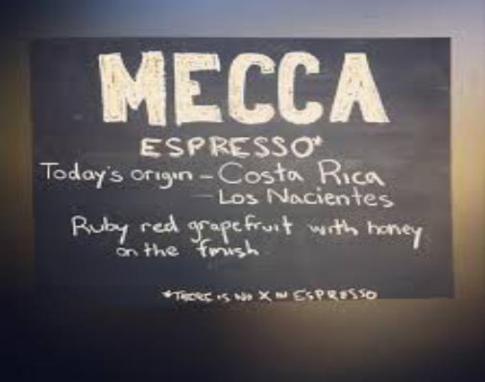 MECCA
ESPRESSO*
Today's origin - Costa Rica
- Los Nacientes
Ruby red grapefruit with honey
on the finish
*THERE IS NO X IN ESPRESSO